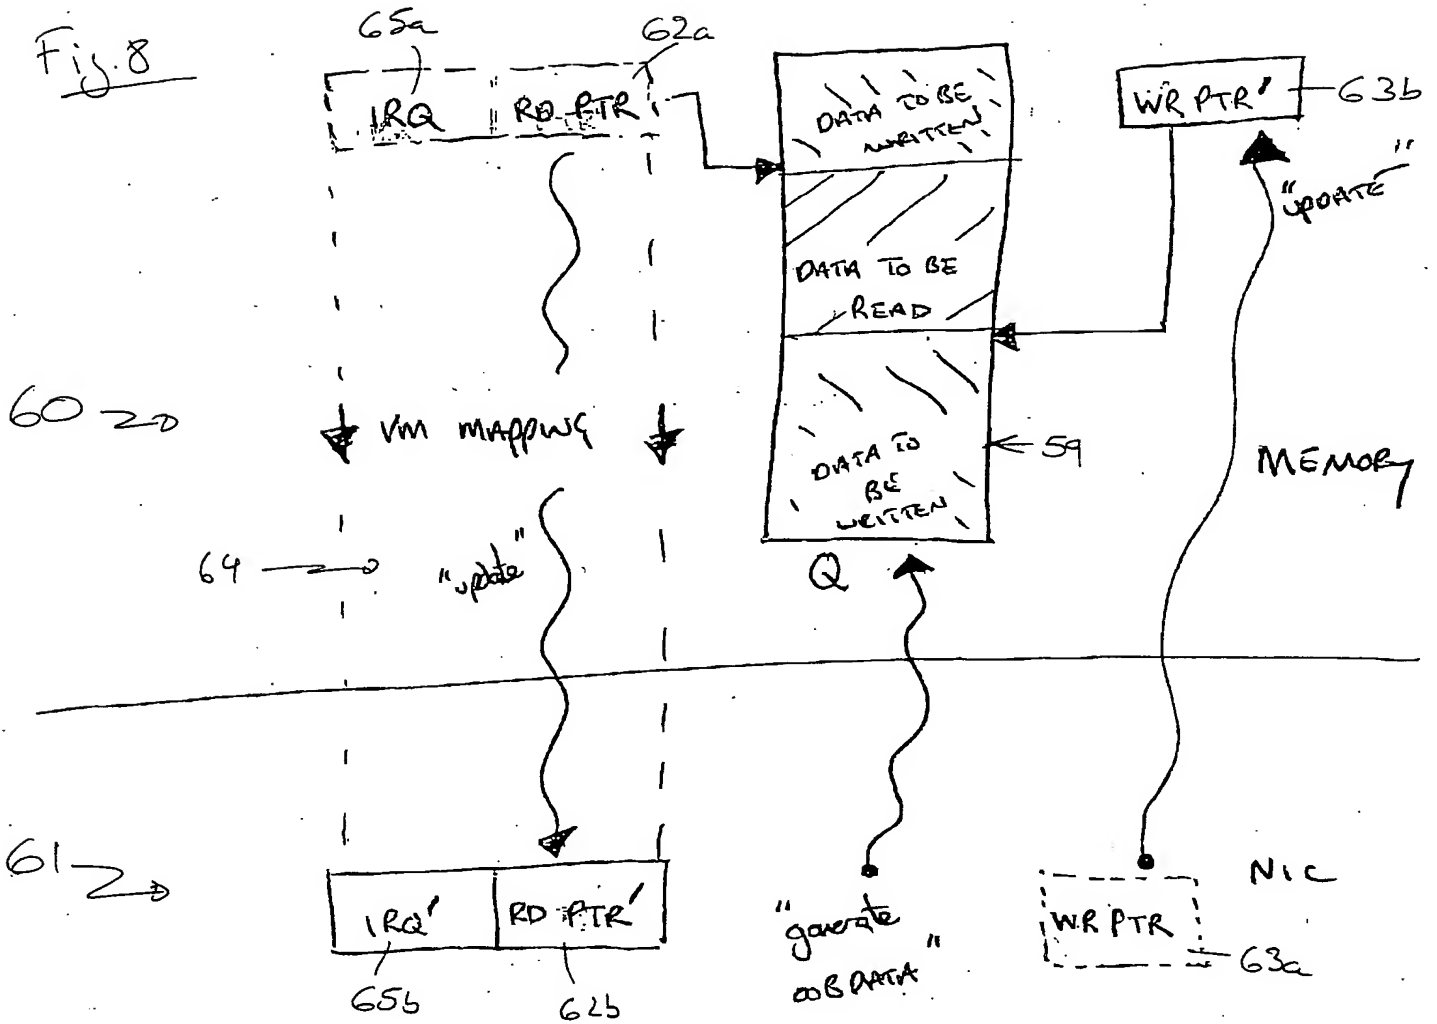 Fig. 8
65a
62a
IRQ
RD PTR
DATA TO BE
WRITTEN
WR PTR'
63b
"UPDATE"
DATA TO BE
READ
60
VM MAPPING
59
DATA TO
BE
WRITTEN
MEMORY
64
"update"
Q
61
IRQ'
RD PTR'
"generate
OOB DATA"
NIC
WR PTR
63a
65b
62b